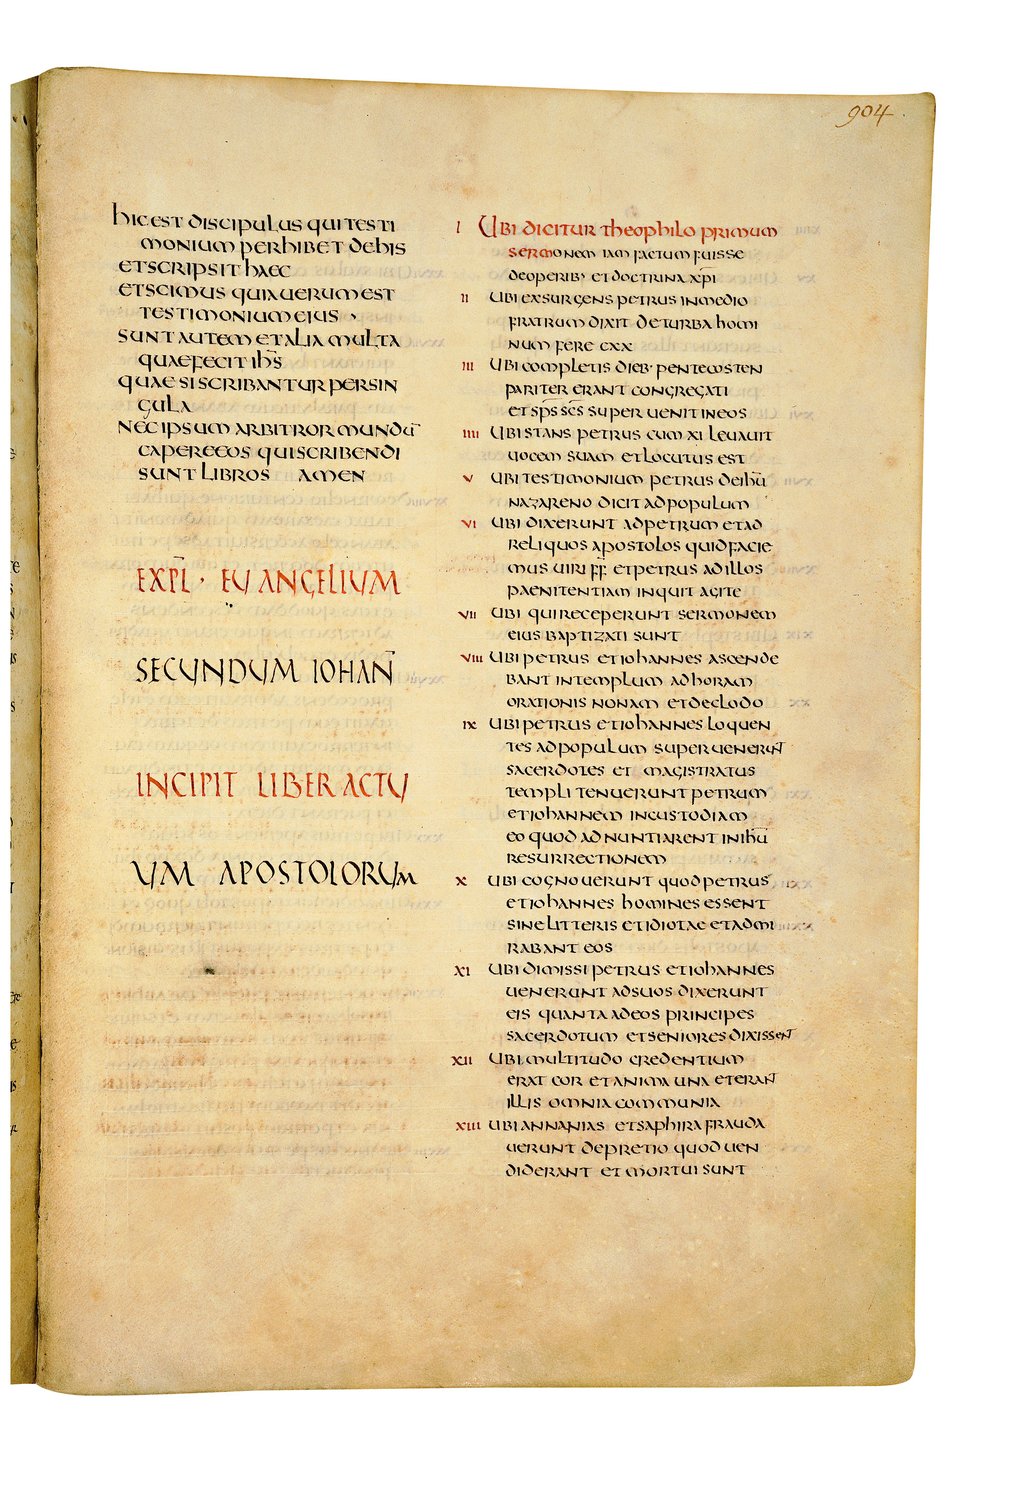 904
hic est discipulus qui testi
monium perhibet de his
et scripsit haec
et scimus quia uerum est
testimonium eius
sunt autem et alia multa
quae fecit ih̅s
quae si scribantur per sin
gula
nec ipsum arbitror mundu̅
capere eos qui scribendi
sunt libros amen
EXPL̅ · EUANGELIUM
SECUNDUM IOHAN̅
INCIPIT LIBER ACTU
UM APOSTOLORUM
I Ubi dicitur theophilo primum
sermonem iam factum fuisse
de operib· et doctrina xp̅i
II Ubi exsurgens petrus in medio
fratrum dixit de turba homi
num fere cxx
III Ubi completis dieb· pentecosten
pariter erant congregati
et sp̅s sc̅s superuenit in eos
IIII Ubi stans petrus cum xi leuauit
uocem suam et locutus est
V Ubi testimonium petrus de ih̅u
nazareno dicit ad populum
VI Ubi dixerunt ad petrum et ad
reliquos apostolos quid facie
mus uiri f̅f̅ et petrus ad illos
paenitentiam inquit agite
VII Ubi qui receperunt sermonem
eius baptizati sunt
VIII Ubi petrus et iohannes ascende
bant in templum ad horam
orationis nonam et de clodo
IX Ubi petrus et iohannes loquen
tes ad populum superuenerunt
sacerdotes et magistratus
templi tenuerunt petrum
et iohannem in custodiam
eo quod adnuntiarent in ih̅u
resurrectionem
X Ubi cognouerunt quod petrus
et iohannes homines essent
sine litteris et idiotae et admi
rabant eos
XI Ubi dimissi petrus et iohannes
uenerunt ad suos dixerunt
eis quanta ad eos principes
sacerdotum et seniores dixissent
XII Ubi multitudo credentium
erat cor et anima una et erant
illis omnia communia
XIII Ubi annanias et saphira frauda
uerunt de pretio quod uen
diderant et mortui sunt